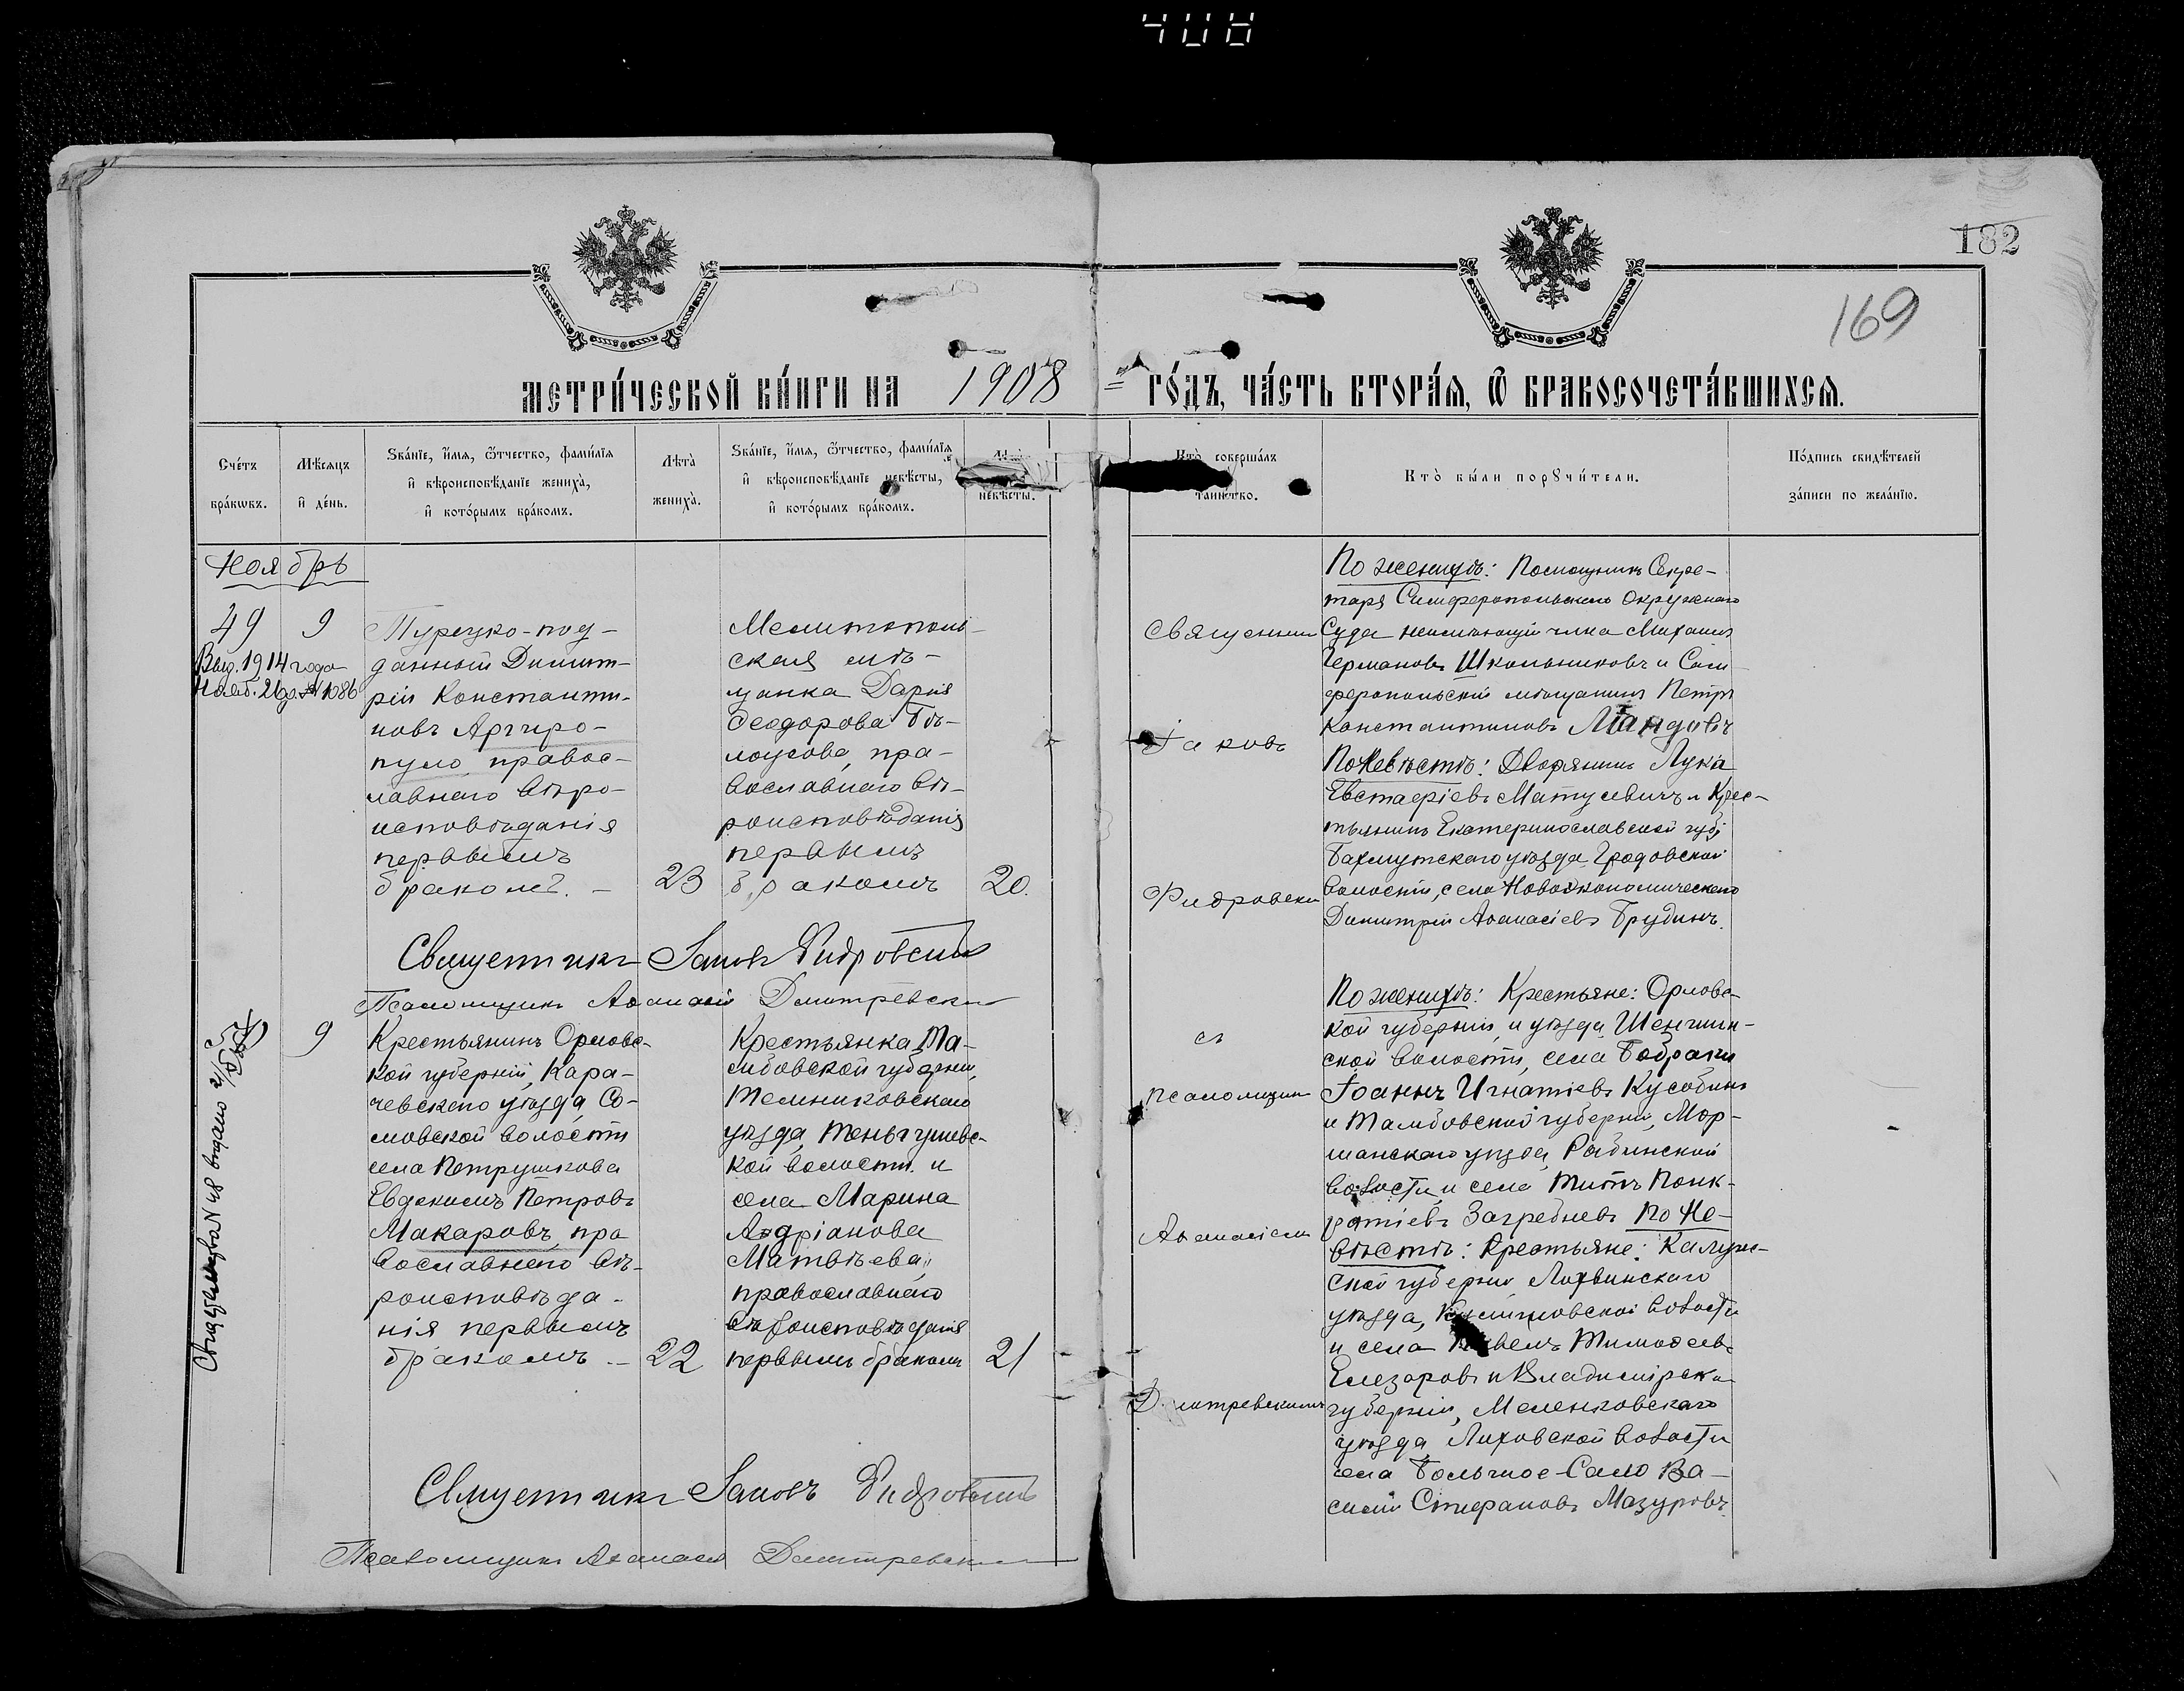 408
182
169
МЕТРИ́ЧЕСКОЙ КНИ́ГИ НА 1908 ГО́ДЪ, ЧА́СТЬ ВТОРА́Я, Ѿ БРАКОСОЧЕТА́ВШИХСЯ.
Сче́тъ
бра́кѡвъ.
Мѣ́сяцъ
и҆ де́нь.
Ѕва́нїе, и҆́мя, ѻ҆́тчество, фами́лїя
и҆ вѣроисповѣ́данїе жениха̀,
и҆ кото́рымъ бра́комъ.
Лѣта̀
жениха̀.
Ѕва́нїе, и҆́мя, ѻ҆́тчество, фами́лїя
и҆ вѣроисповѣ́данїе невѣ́сты,
и҆ кото́рымъ бра́комъ.
невѣ́сты.
Кто̀ соверша́лъ
таинство.
Кто̀ бы́ли порꙋчи́тели.
По́дпись свидѣ́телей
за́писи по жела́нїю.
Ноябрь
49
9
Выд. 1914 года
Нояб. 26 д. № 1086
Турецко-под-
данный Димит-
рій Константи-
новъ Аргиро-
пуло, правос-
лавнаго вѣро-
исповѣданія
первымъ
бракомъ. –
23
Мелитополь-
ская мѣ-
щанка Дарія
Ѳеодорова Бѣ-
лоусова, пра-
вославнаго вѣ-
роисповѣданія
первымъ
бракомъ
20.
Священник
Іаковъ
Фидровски
По женихѣ: Помощникъ Секре-
таря Симферопольскаго Окружнаго
Суда неимѣющій чина Михаилъ
Германовъ Школьниковъ и Сим-
феропольскій мѣщанинъ Петръ
Константиновъ
По невѣстѣ: Дворянинъ Лука
Евстафіевъ Матусевичъ и Крес-
тьянинъ Екатеринославской губ.
Бахмутскаго уѣзда Гродовской
волости, села Новоэкономическаго
Димитрій Аѳанасіевъ Брудинъ.
Священникъ Іаковъ Фидровскій
Псаломщикъ Аѳанасій Дмитревскій
Свидѣтельство № 48 выдано
50
9
Крестьянинъ Орловс-
кой губерніи, Кара-
чевскаго уѣзда, Со-
мовской волости
села Петрушкова
Евдокимъ Петровъ
Макаровъ, пра
вославнаго вѣ-
роисповѣда-
нія первымъ
бракомъ. –
22
Крестьянка Та-
мбовской губерніи,
Темниковскаго
уѣзда, Теньгушевс-
кой волости и
села Марина
Андріанова
Матвѣева,
православнаго
вѣроисповѣданія
первымъ бракомъ
21
съ
псаломщик
Аѳанасіем
Дмитревскимъ
По женихѣ: Крестьяне: Орловс-
кой губерніи, и уѣзда, Шеншин-
ской волости, села Бобраки
Іоаннъ Игнатіевъ Кусобинъ
и Тамбовской губерніи, Мор-
шанскаго уѣзда, Рыбинской
волости и села Титъ Понк-
ратіевъ Загребневъ По Не-
вѣстѣ: Крестьяне: Калужс-
ской губерніи, Лихвинскаго
уѣзда, волости
и села Павелъ Тимоѳеевъ
Елезаровъ и Владимірска
губерніи, Меленковскаго
уѣзда, Ляховской волости
села Большое-Село Ва-
силій Стефановъ Мазуровъ.
Священникъ Іаковъ Фидровскій
Псаломщикъ Аѳанасій Дмитревскій